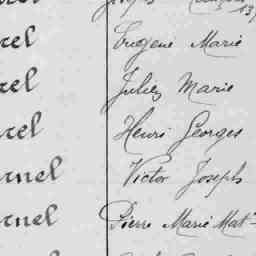 rel Eugène Marie
rel Jules Marie
rel Henri Georges
rnel Victor Joseph
rnel Pierre Marie Mat.